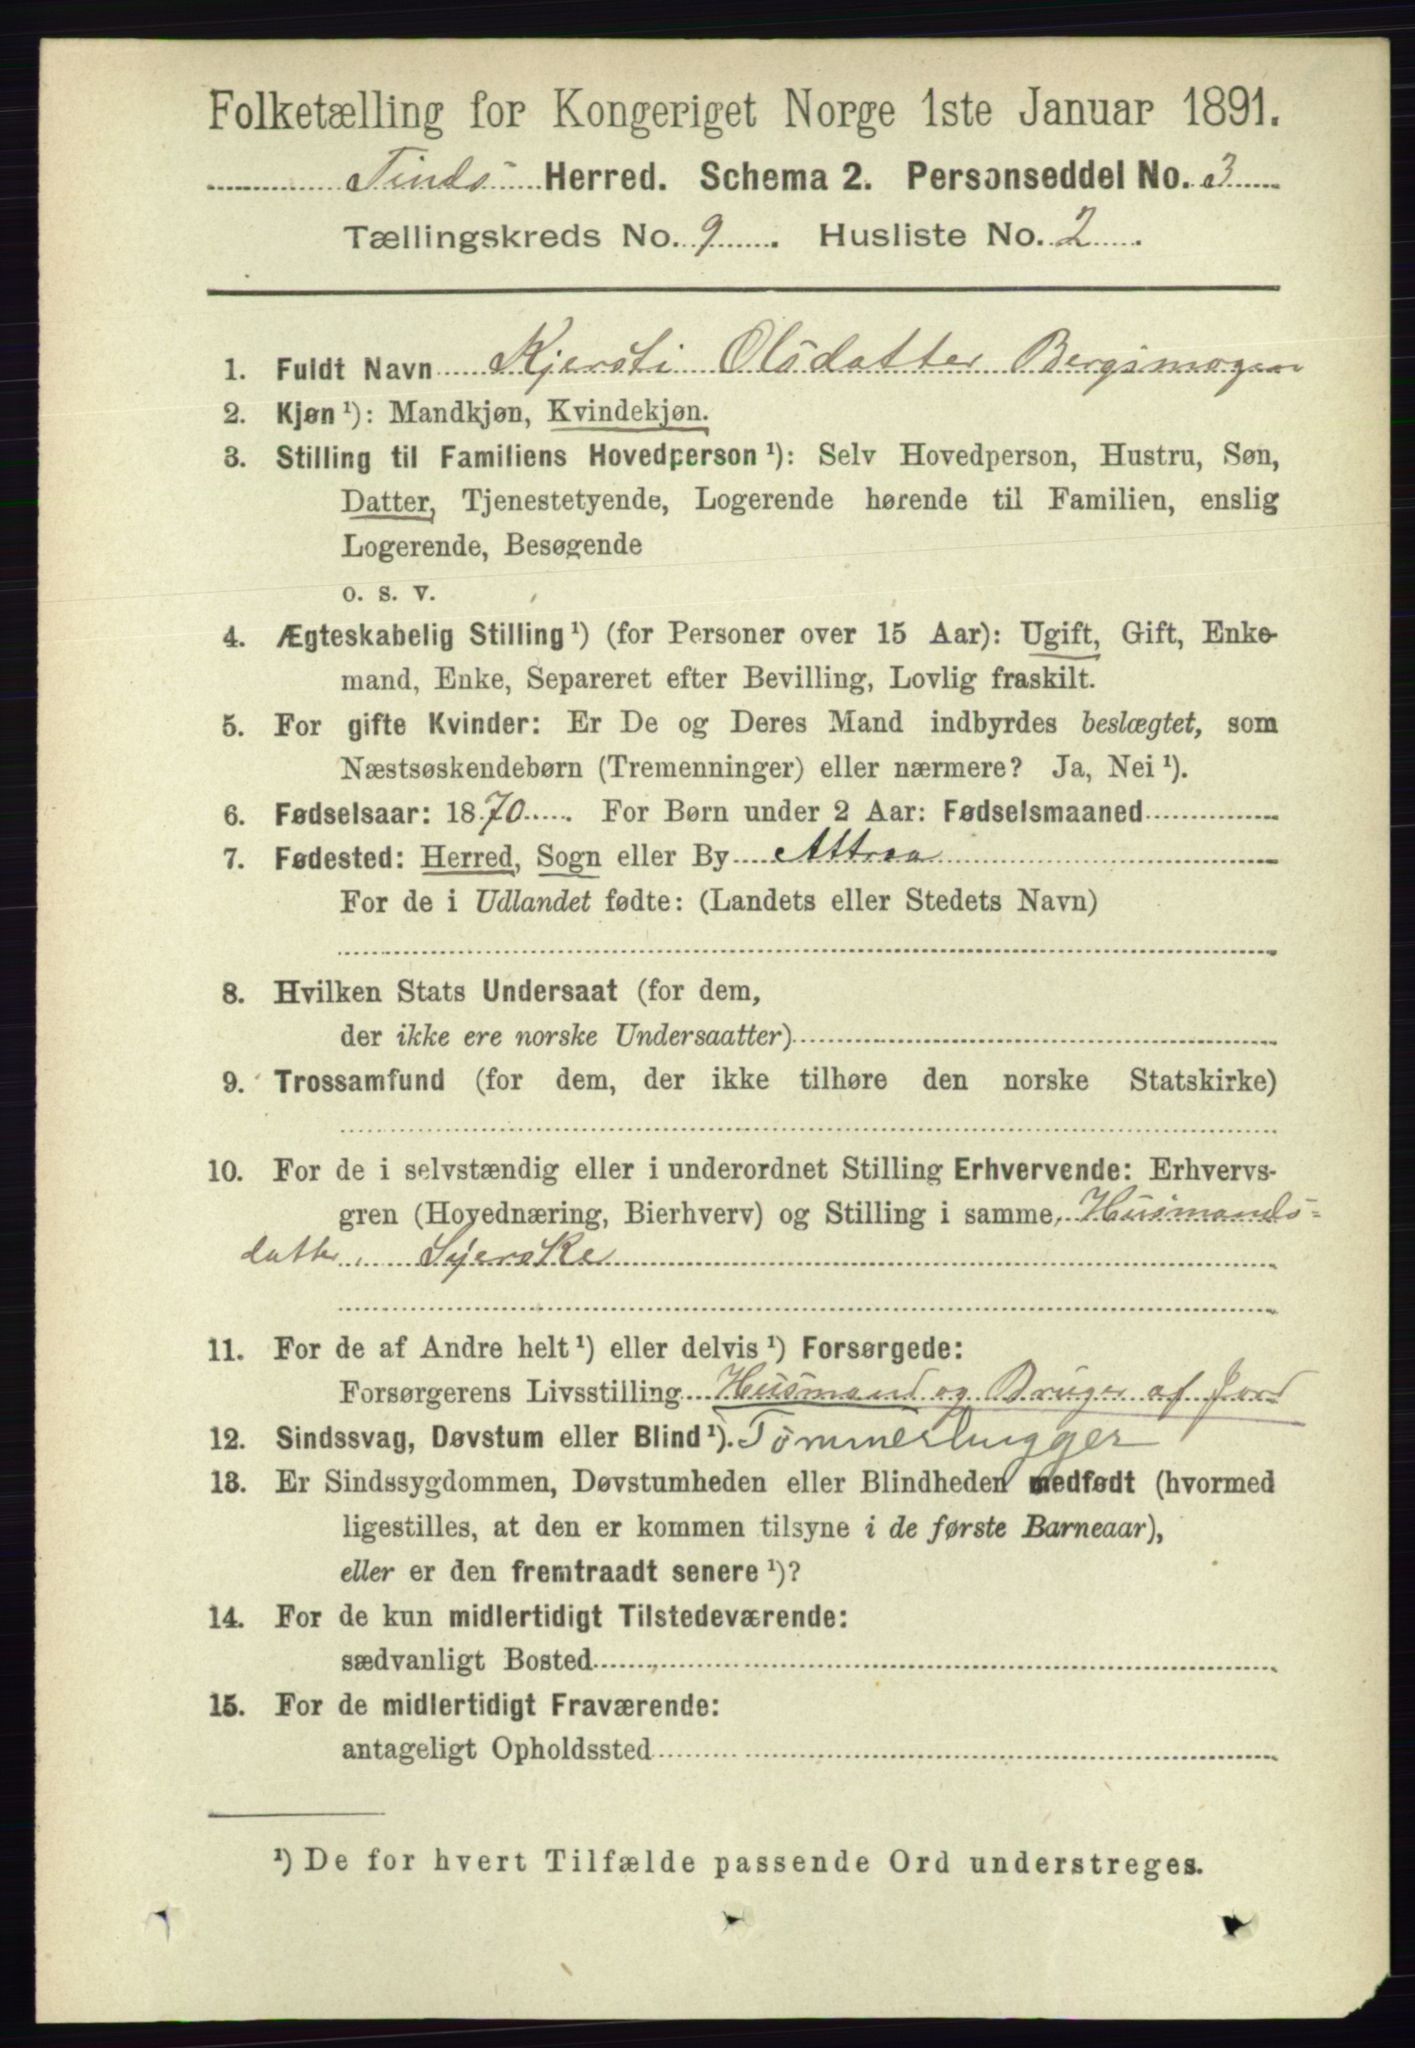 Folketælling for Kongeriget Norge 1ste Januar 1891.
Tinds Herred. Schema 2. Personseddel No. 3
Tællingskreds No. 9. Husliste No. 2.
1. Fuldt Navn Kjersti Olsdatter Bergsmogen
2. Kjøn ¹): Mandkjøn, Kvindekjøn.
3. Stilling til Familiens Hovedperson ¹): Selv Hovedperson, Hustru, Søn,
Datter, Tjenestetyende, Logerende hørende til Familien, enslig
Logerende, Besøgende
o. s. v.
4. Ægteskabelig Stilling ¹) (for Personer over 15 Aar): Ugift, Gift, Enke-
mand, Enke, Separeret efter Bevilling, Lovlig fraskilt.
5. For gifte Kvinder: Er De og Deres Mand indbyrdes beslægtet, som
Næstsøskendebørn (Tremenninger) eller nærmere? Ja, Nei ¹).
6. Fødselsaar: 1870. For Børn under 2 Aar: Fødselsmaaned
7. Fødested: Herred, Sogn eller By Attraa
For de i Udlandet fødte: (Landets eller Stedets Navn)
8. Hvilken Stats Undersaat (for dem,
der ikke ere norske Undersaatter)
9. Trossamfund (for dem, der ikke tilhøre den norske Statskirke)
10. For de i selvstændig eller i underordnet Stilling Erhvervende: Erhvervs-
gren (Hovednæring, Bierhverv) og Stilling i samme. Husmands-
datter Syerske
11. For de af Andre helt ¹) eller delvis ¹) Forsørgede:
Forsørgerens Livsstilling Husmand og Bruger af Jord
12. Sindssvag, Døvstum eller Blind ¹). Tømmerhugger
13. Er Sindssygdommen, Døvstumheden eller Blindheden medfødt (hvormed
ligestilles, at den er kommen tilsyne i de første Barneaar),
eller er den fremtraadt senere ¹)?
14. For de kun midlertidigt Tilstedeværende:
sædvanligt Bosted
15. For de midlertidigt Fraværende:
antageligt Opholdssted
¹) De for hvert Tilfælde passende Ord understreges.